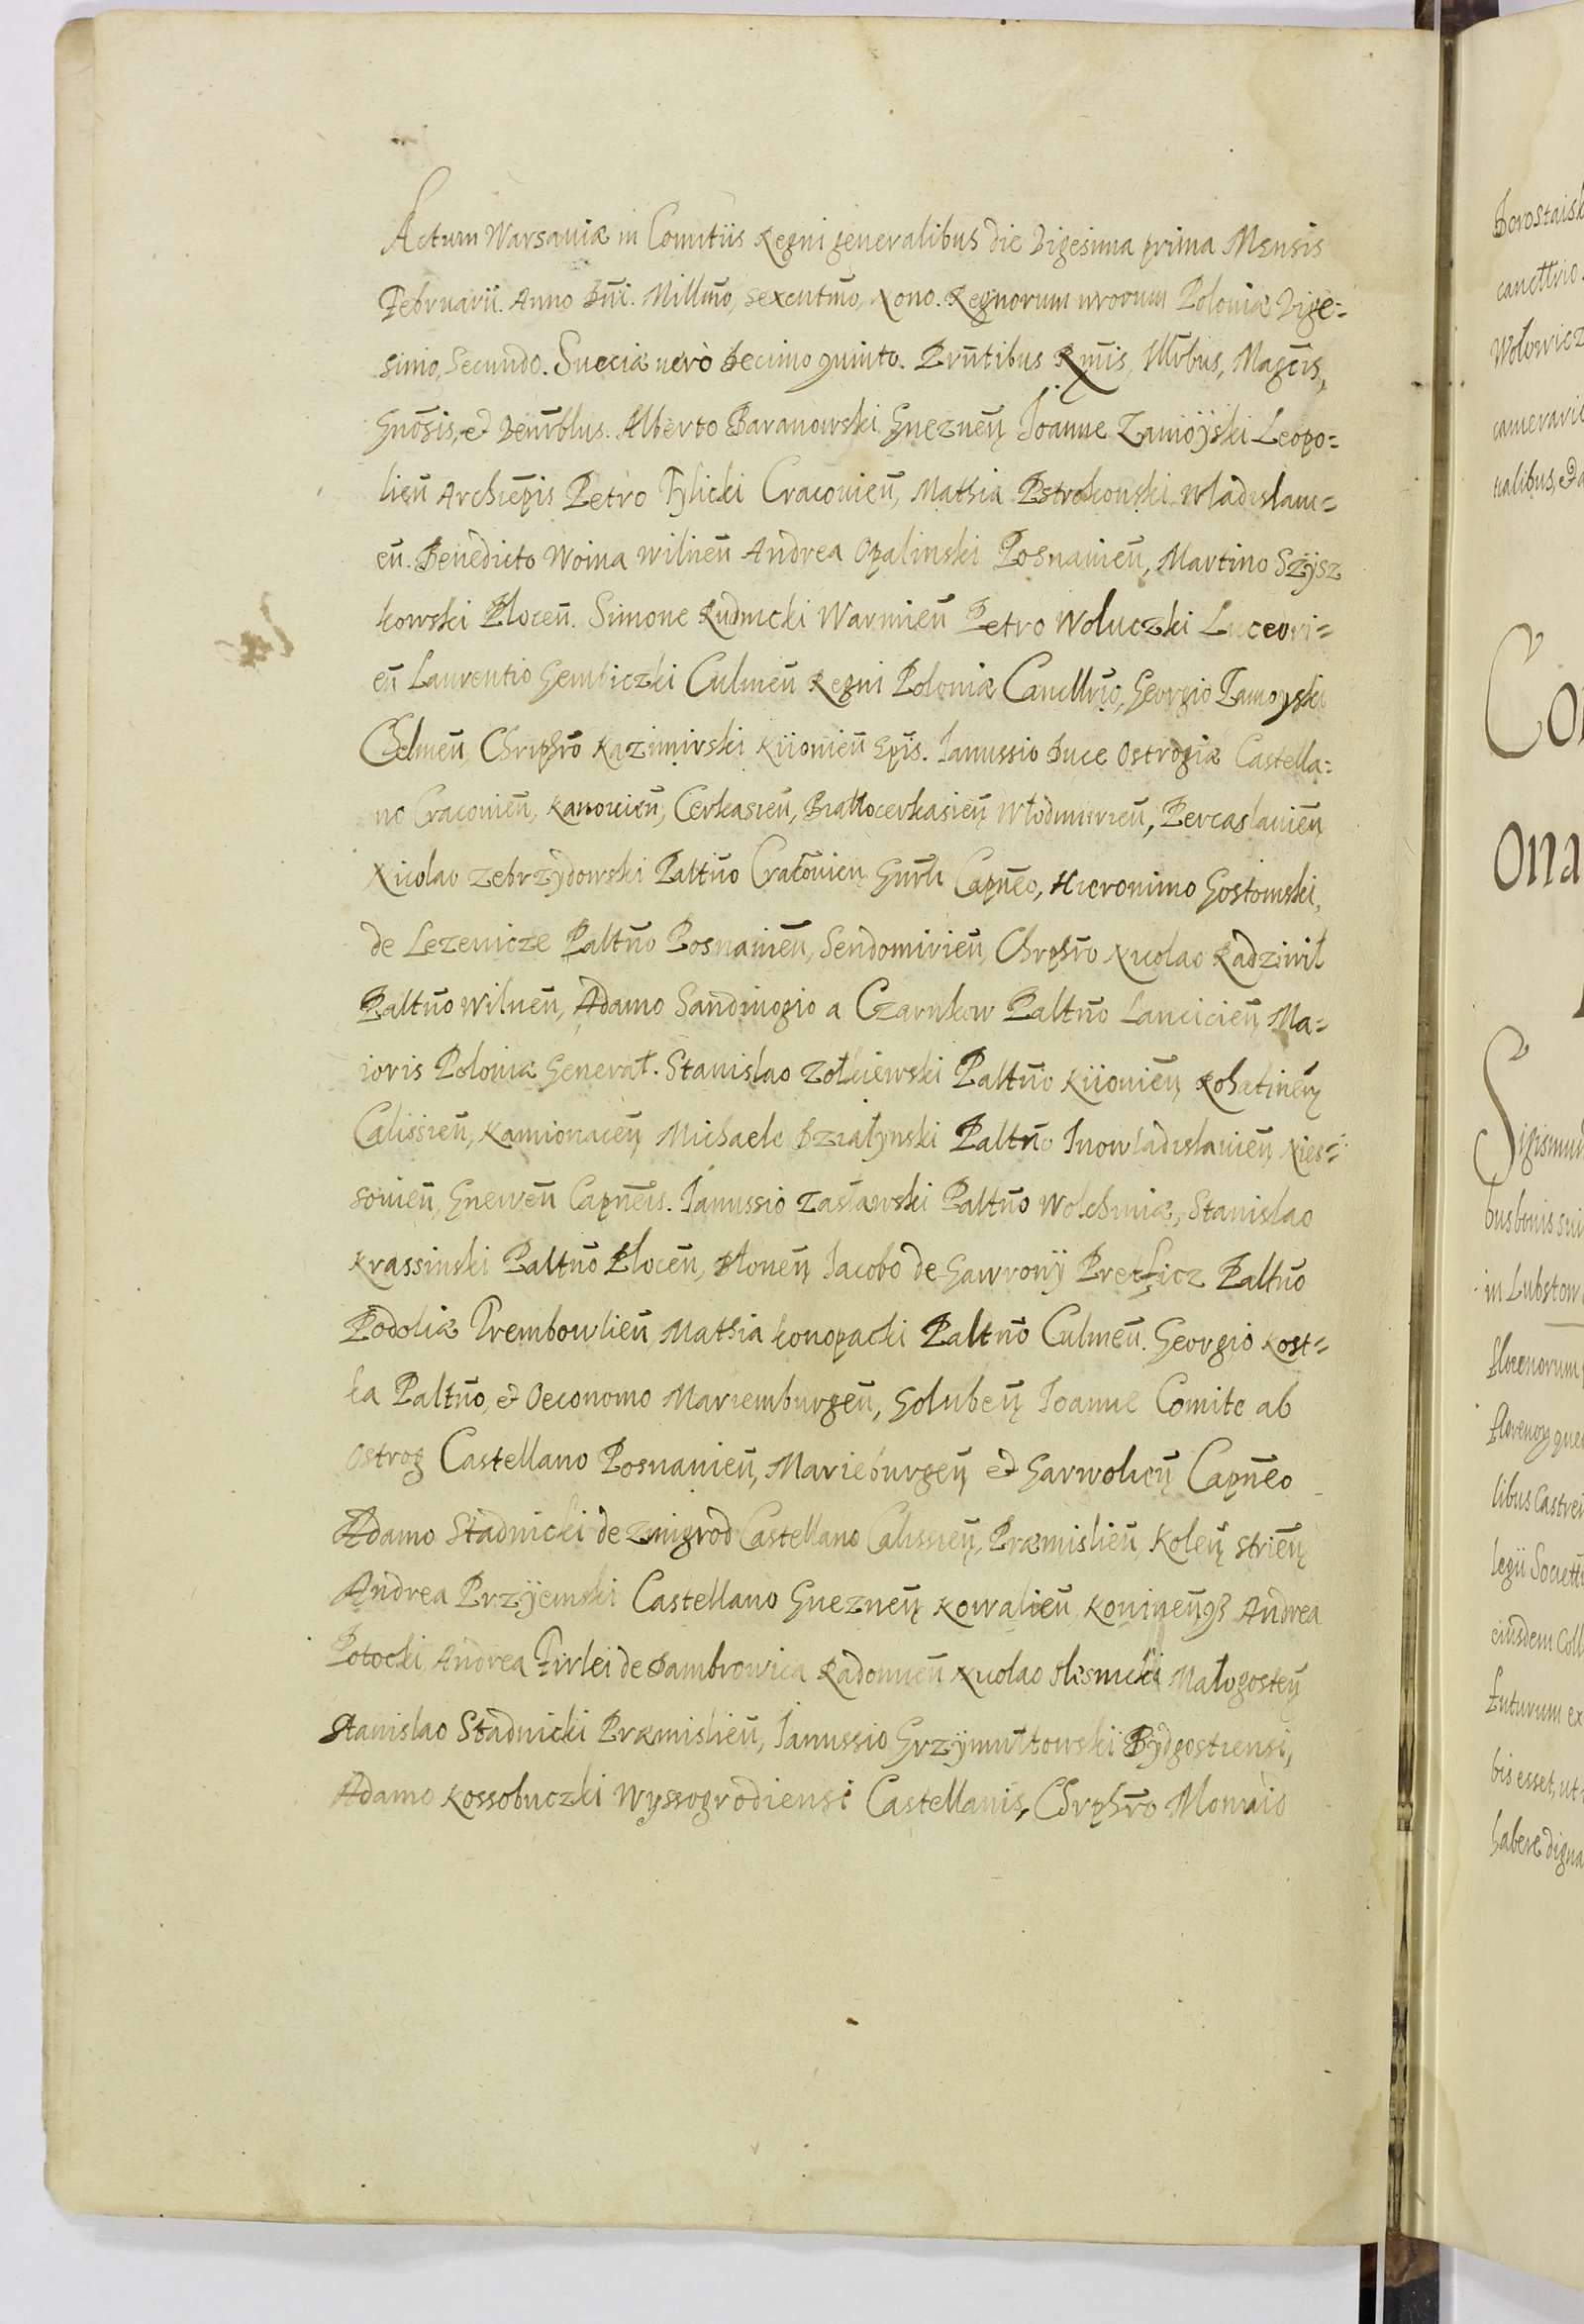 Actum Warsaviæ in Comitiis Regni generalibus die Vigesima prima Mensis
Februarii. Anno Dñi. Millmo, sexcentmo, Nono. Regnorum nrorum Poloniæ Vige=
simo, Secundo. Sueciæ verò Decimo quinto. Prñtibus Rmis, Illrbus, Magcis,
Gñosis, et Venrblus. Alberto Baranowski Gneznen̄ Joanne Zamoÿski Leopo=
lien̄ Archiep̄is Petro Tylicki Cracovien̄, Mathia Pstrokonski Wladislavi=
en̄. Benedicto Woina Wilnen̄ Andrea Opalinski Posnanien̄, Martino Szÿsz
kowski Plocen̄. Simone Rudnicki Warmien̄ Petro Woluczki Luceori=
en̄ Laurentio Gembiczki Culmen̄ Regni Poloniæ Cancllrio, Georgio Zamoyski
Chelmen̄ Chrip̄hro Kazimirski Kiiovien̄ Ep̄is. Ianussio Duce Ostrogiæ Castella=
no Cracovien̄, Kanovien̄, Cerkasien̄, Białłocerkasien̄ Włodimirien̄, Pereaslavien̄
Nicolao Zebrzÿdowski Paltño Cracovien̄ Gnrli Capñeo, Hieronimo Gostomski,
de Lezenicze Paltño Posnanien̄, Sendomirien̄, Chrp̄hro Nicolao Radziwił
Paltño Wilnen̄, Adamo Sandivogio a Czarnkow Paltño Lancicien̄ Ma=
ioris Poloniæ Generał. Stanislao Zołkiewski Paltño Kiiovien̄ Rohatinen̄
Calissien̄, Kamionacen̄ Michaele Działynski Paltño Inowladislavien̄ Nies=
sovien̄, Gneven̄ Capñeis. Ianussio Zasławski Paltño Wolchiniæ, Stanislao
Krassinski Paltño Plocen̄, Plonen̄ Iacobo de Gawronÿ Pretficz Paltño
Podoliæ Trembowlien̄ Mathia Konopacki Paltño Culmen̄. Georgio Kost=
ka Paltño, et Oeconomo Mariemburgen̄, Goluben̄ Ioanne Comite ab
Ostrog Castellano Posnanien̄, Marieburgen̄ et Garwolien̄ Capñeo
Adamo Stadnicki de Zmigrod Castellano Calissien̄, Præmislien̄ Kolen̄ Strien̄
Andrea Przÿemski Castellano Gneznen̄ Kowalien̄ Koninen̄qz Andrea
Potocki Andrea Firlei de Dambrowica Radomien̄ Nicolao Olesnicki Małogosten̄
Stanislao Stadnicki Præmislien̄, Ianussio Grzÿmułtowski Bÿdgostiensi,
Adamo Kossobuczki Wyssogrodiensi Castellanis, Chrp̄hro Monvid